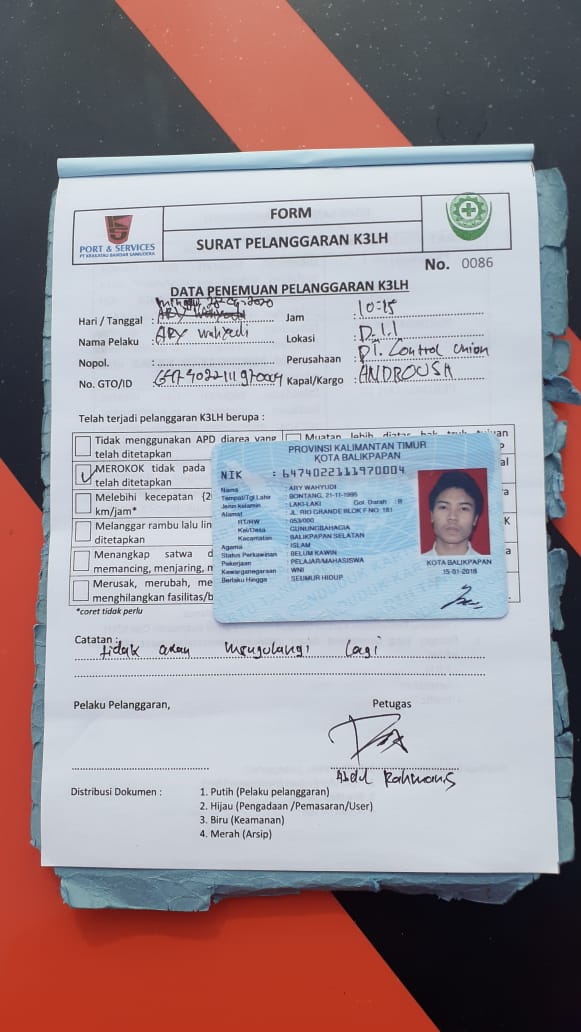 PORT & SERVICES
PT KRAKATAU BANDAR SAMUDERA
FORM
SURAT PELANGGARAN K3LH
No. 0086
DATA PENEMUAN PELANGGARAN K3LH
Hari / Tanggal : Minggu 2020
Jam : 10.15
Nama Pelaku : ARY wahyudi
Lokasi : D.1.1
Nopol. :
Perusahaan : PT. Control Union
No. GTO/ID : 6474022111970004
Kapal/Kargo : ANDROUSA
Telah terjadi pelanggaran K3LH berupa :
Tidak menggunakan APD diarea yang telah ditetapkan
Muatan lebih diatas bak truk
MEROKOK tidak pada
telah ditetapkan
Melebihi kecepatan
km/jam*
Melanggar rambu lalu
ditetapkan
Menangkap satwa
memancing, menjaring,
Merusak, merubah,
menghilangkan
*coret tidak perlu
PROVINSI KALIMANTAN TIMUR
KOTA BALIKPAPAN
NIK : 6474022111970004
Nama : ARY WAHYUDI
Tempat/Tgl Lahir : BONTANG, 21-11-1995
Jenis kelamin : LAKI-LAKI Gol. Darah : B
Alamat : JL RIO GRANDE BLOK F NO. 181
RT/RW : 053/000
Kel/Desa : GUNUNGBAHAGIA
Kecamatan : BALIKPAPAN SELATAN
Agama : ISLAM
Status Perkawinan : BELUM KAWIN
Pekerjaan : PELAJAR/MAHASISWA
Kewarganegaraan : WNI
Berlaku Hingga : SEUMUR HIDUP
KOTA BALIKPAPAN
15-01-2018
Catatan : tidak akan mengulangi lagi
Pelaku Pelanggaran,
Petugas
Abdul Rahmans
Distribusi Dokumen :
1. Putih (Pelaku pelanggaran)
2. Hijau (Pengadaan /Pemasaran/User)
3. Biru (Keamanan)
4. Merah (Arsip)